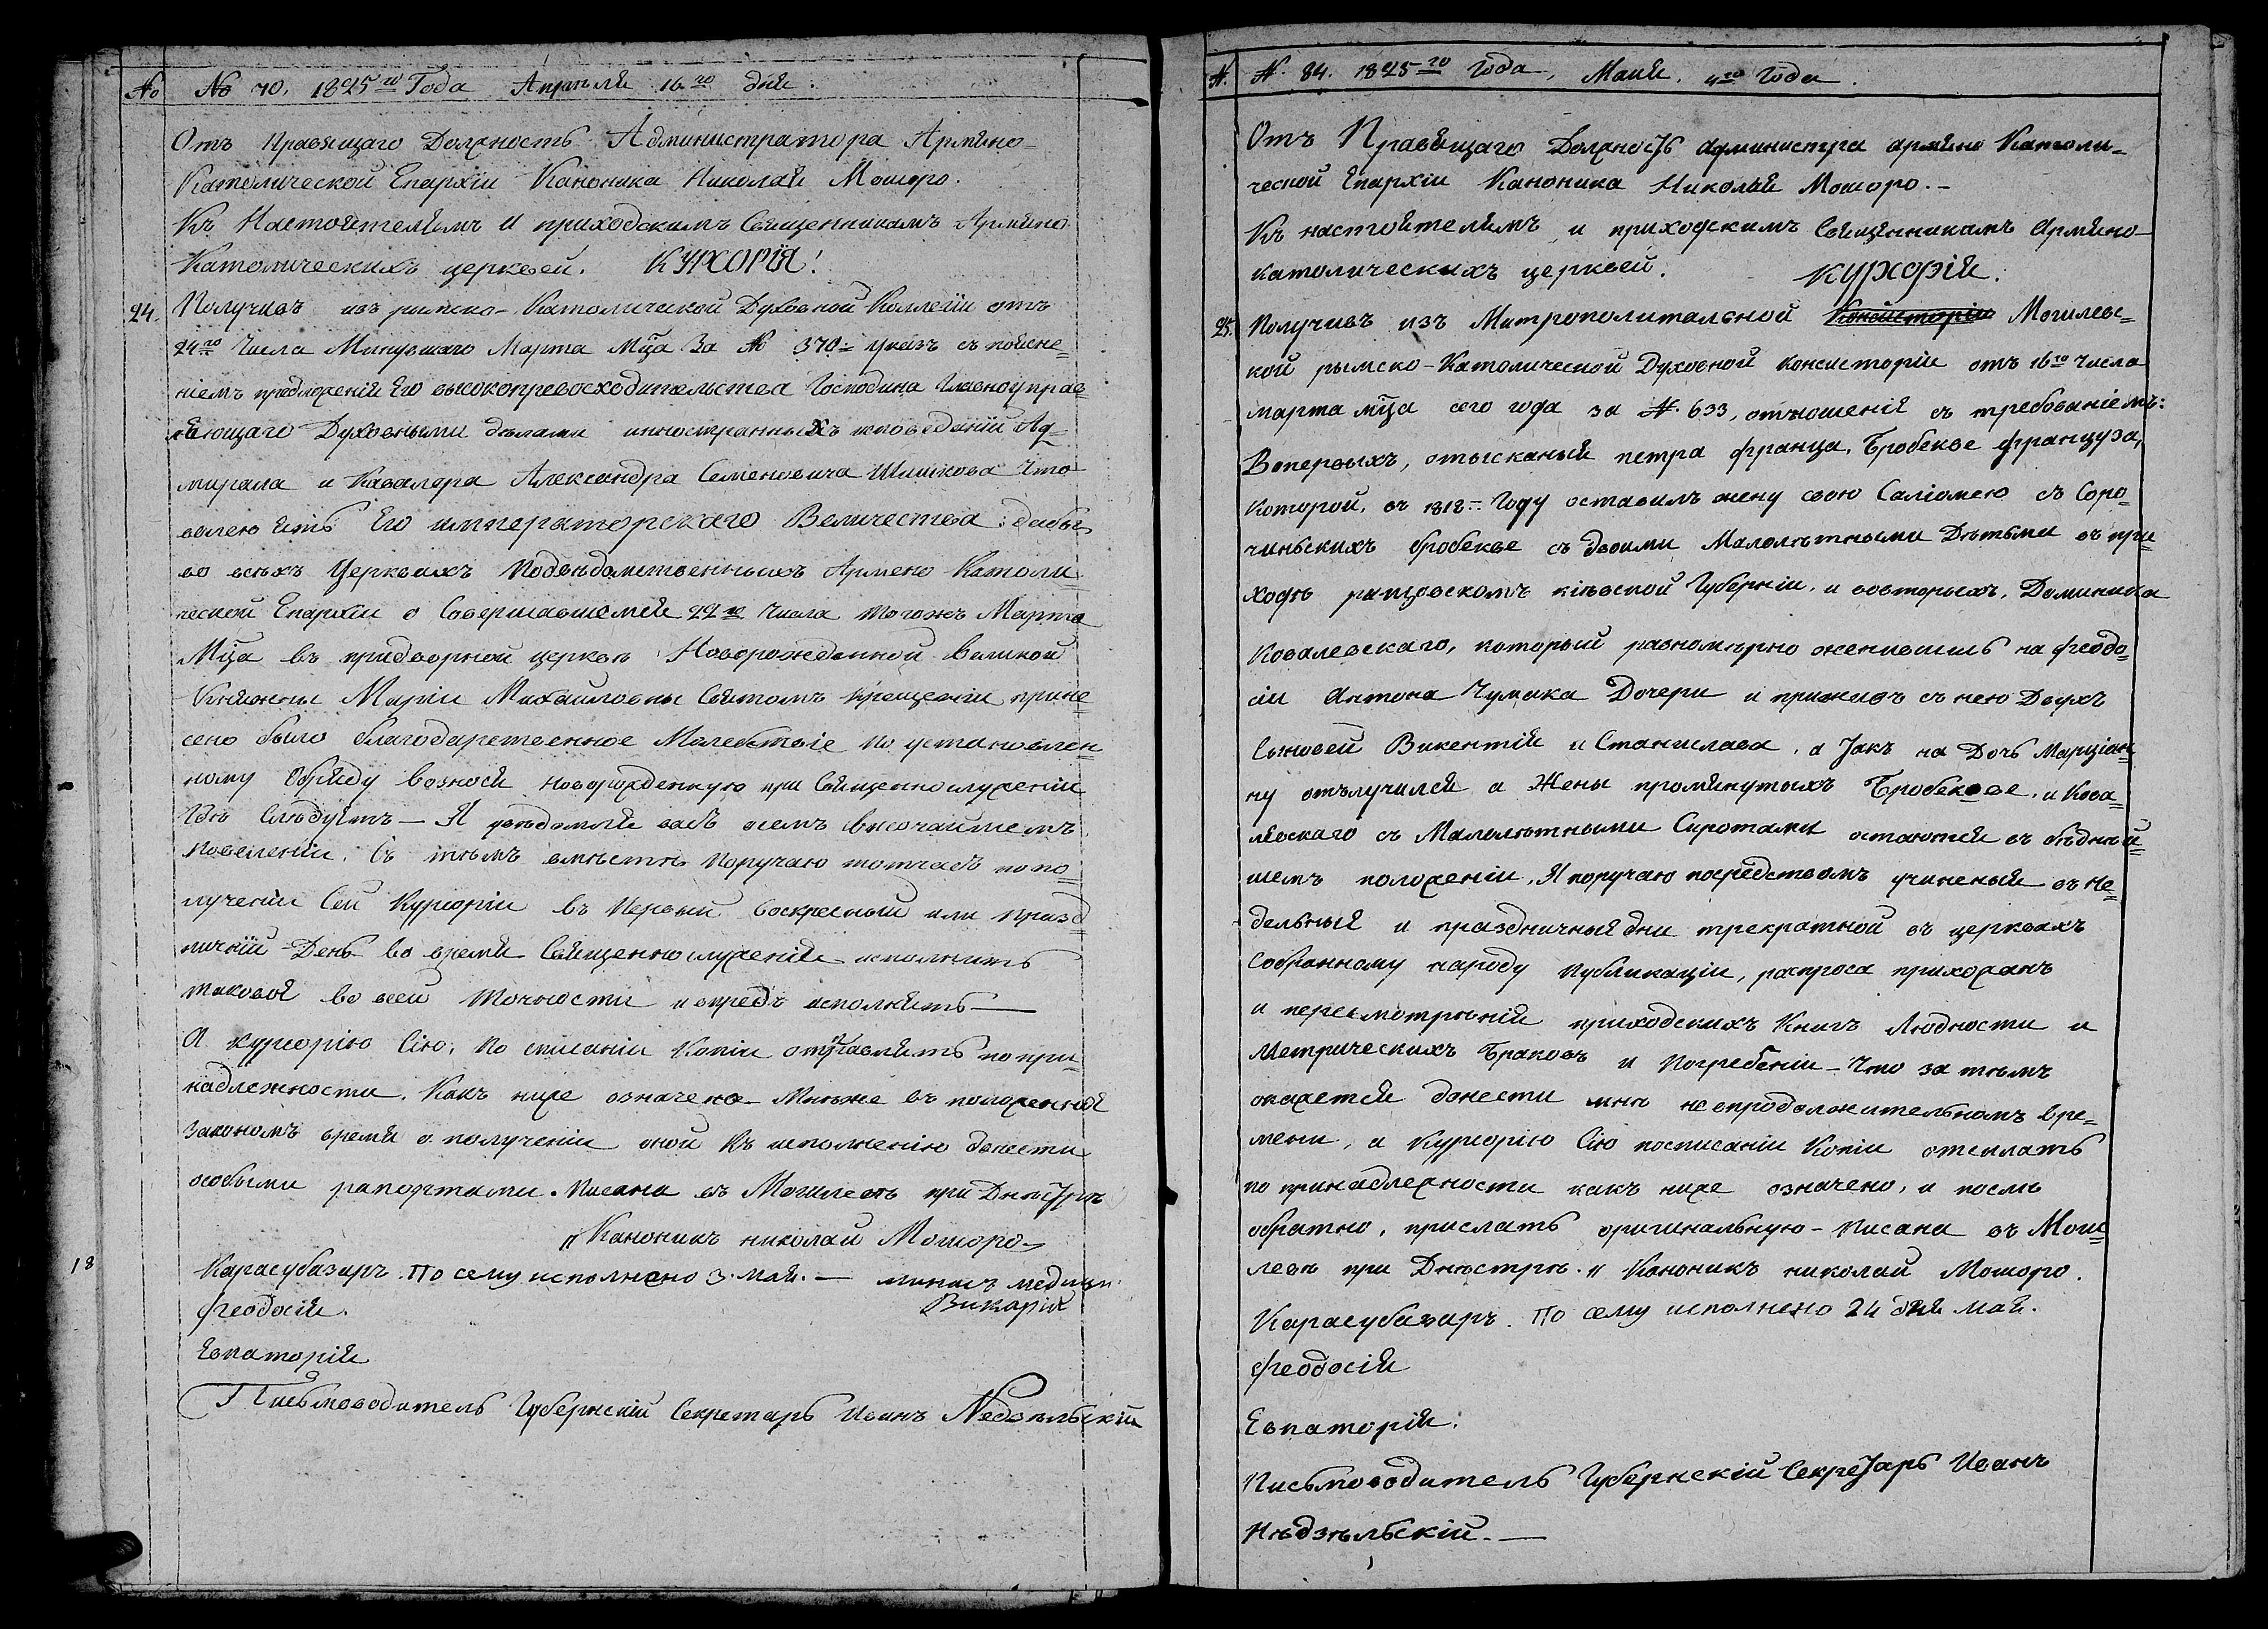 No No 70. 1825го Года Апрѣля 16го дня.
Отъ Правящаго Должность Администратора Армяно-
Католической Епархіи Каноника Николая Мошоро.
Къ Настоятелямъ и приходскимъ Священникамъ Армяно
Католическихъ церквей. КУРСОРІЯ!
24. Получивъ изъ римско-Католической Духовной Коллегіи отъ
24го Числа Минувшаго Марта Мца За No 370 Указъ съ поясне=
ніемъ предложенія Его высокопревосходительства Господина Главноуправ=
ляющаго Духовными дѣлами инностранныхъ исповѣданій Ад=
мирала и Кавалера Александра Семеновича Шишкова Что
волею есть Его императорскаго Величества: дабы
во всѣхъ Церквахъ Подвѣдомственныхъ Армено Католи
ческой Епархіи о Совершавшемся 22го Числа тогожъ Марта
Мца въ придворной церкви Новорожденной Великой
Княжны Маріи Михайловны Святомъ крещеніи прине=
сено было благодарственное Молебствіе по установлен
ному Обряду вознося новорожденную при Священнослуженіи
Гдѣ Слѣдуетъ — Я увѣдомляя васъ осемъ высочайшемъ
Повеленіи, Съ тѣмъ вмѣстѣ поручаю тотчасъ по по=
лученіи Сей Курсоріи въ Первый воскресный или празд
ничній День во время Священнослуженія исполнить
таковой во всей точности и впредъ исполнять —
А курсорію Сію, по списаніи Копіи отправлять по при-
надлежности, Какъ ниже означено — Мнѣже въ положенной
закономъ время о полученіи оной къ исполненію донести
особыми рапортами. Писана въ Могилевѣ при Днѣстрѣ
„Каноникъ николай Мошоро
18
Карасубазаръ. По сему исполнено 3. Мая. — минасъ медици
Феодосія. Викарій
Евпаторія
Письмоводитель Губернскій Секретарь Иванъ Nедзѣльскій
N. N. 84. 1825го Года, Маия, 4го Года.
Отъ Правящаго Должность администра армяно Католи-
ческой Епархіи Каноника Николая Мошоро. —
Къ настоятелямъ и приходскимъ Священникамъ Армяно-
католическихъ церквей. КУРСОРІЯ.
25. Получивъ изъ Митрополитальной Консисторіи Могилевс=
кой рымско-Католической Духовной консисторіи отъ 16го Числа
марта мца сего года за N. 633, отношенія съ требованіемъ:
Вопервыхъ, отысканыя петра франца, Бробекве француза,
которой, въ 1812 Году оставилъ жену свою Саліомею съ Соро=
чиньскихъ бробекве съ двоими Малолѣтными Дѣтьми въ при=
ходѣ ранцовскомъ кіевской Губерніи, и вовторыхъ, Доминика
Ковалевскаго, который равномѣрно женившись на феодо=
сіи Антона Чумака Дочери и приживъ съ нею Двухъ
Сыновей Викентія и Станислава, а Jакъ на Дочь Марціан=
ну отълучился а Жены промянутыхъ Бробекве, и Кова=
левскаго съ Малолѣтными Сиротами остаются въ бѣднѣй=
шемъ положеніи, Я поручаю посредствомъ учиненыя въ не=
дельныя и праздничныя дни трекратной въ церквахъ
Собранному народу публикаціи, распроса прихожанъ
и пересмотрѣнія приходскихъ Книгъ Людности и
Метрическихъ Браковъ и Погребеніи — Что за тѣмъ
окажется донести мнѣ невпродолжительномъ вре=
мени, а Курсорію Сію посписаніи Копіи отсилать
по принадлежности какъ ниже означено, и послѣ
обратно, прислать оригинальную — Писана въ Моги=
левѣ при Днѣстрѣ. „ Каноникъ николай Мошоро.
Карасубазаръ. По сему исполнено 24 дня мая.
Феодосія
Евпаторія.
Письмоводитель Губернскій СекреJарь Иванъ
Нѣдзѣльскій. —